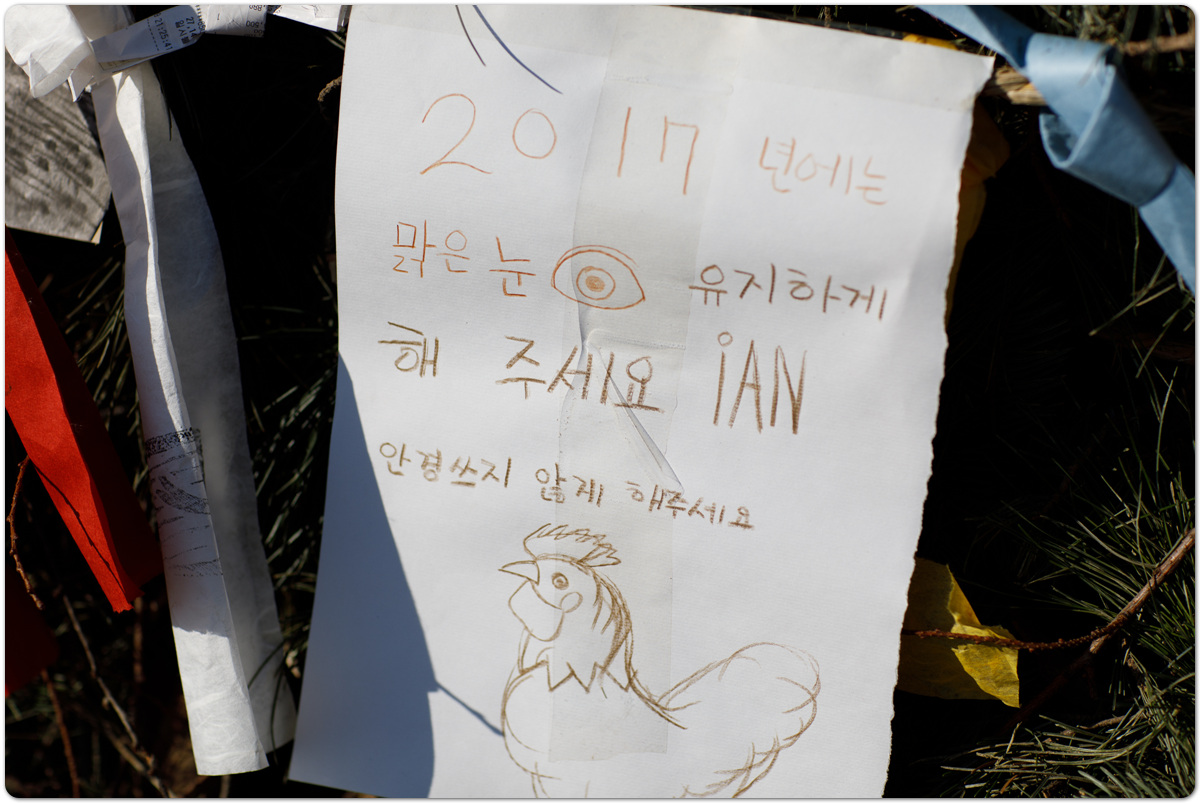 21:25:41
2017 년에는
맑은 눈 유지하게
해 주세요 iAN
안경쓰지 않게 해주세요